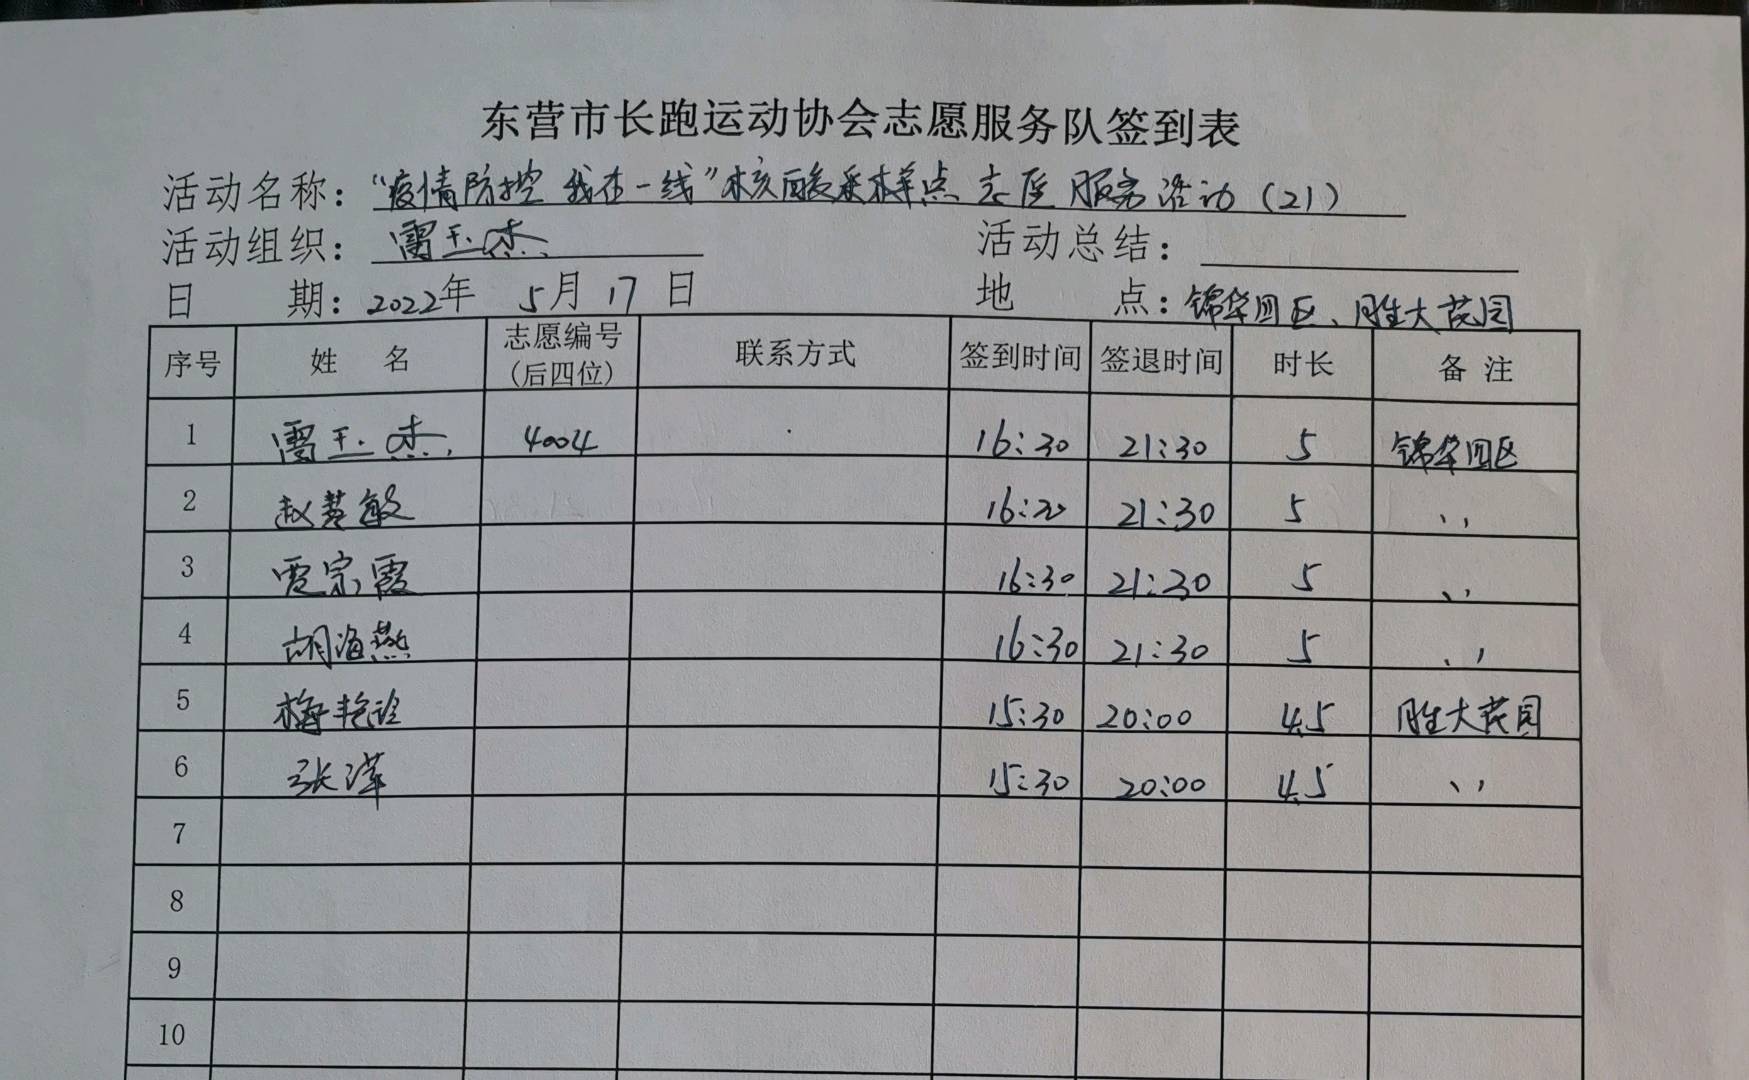 东营市长跑运动协会志愿服务队签到表
活动名称：“疫情防控 我在一线”核酸采样点志愿服务活动（21）
活动组织：雷玉杰 活动总结：
日 期：2022年 5月 17 日 地 点：锦华四区、胜大花园
序号 姓 名 志愿编号（后四位） 联系方式 签到时间 签退时间 时长 备 注
1 雷玉杰 4004 16:30 21:30 5 锦华四区
2 赵英敏 16:30 21:30 5 〃
3 贾宗霞 16:30 21:30 5 〃
4 胡海燕 16:30 21:30 5 〃
5 梅艳玲 15:30 20:00 4.5 胜大花园
6 张萍 15:30 20:00 4.5 〃
7
8
9
10